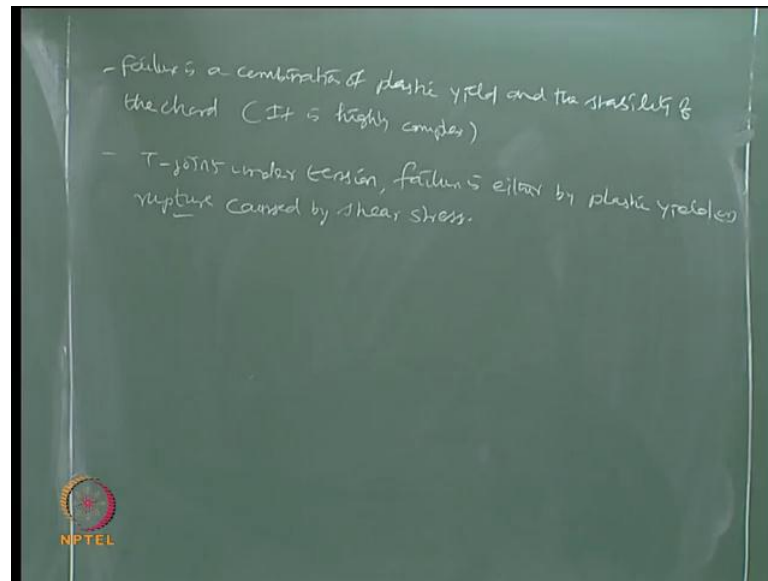 - failure is a combination of plastic yield and the stability of
the chord (It is highly complex)
- T-joint under tension, failure is either by plastic yield or
rupture caused by shear stress.
NPTEL